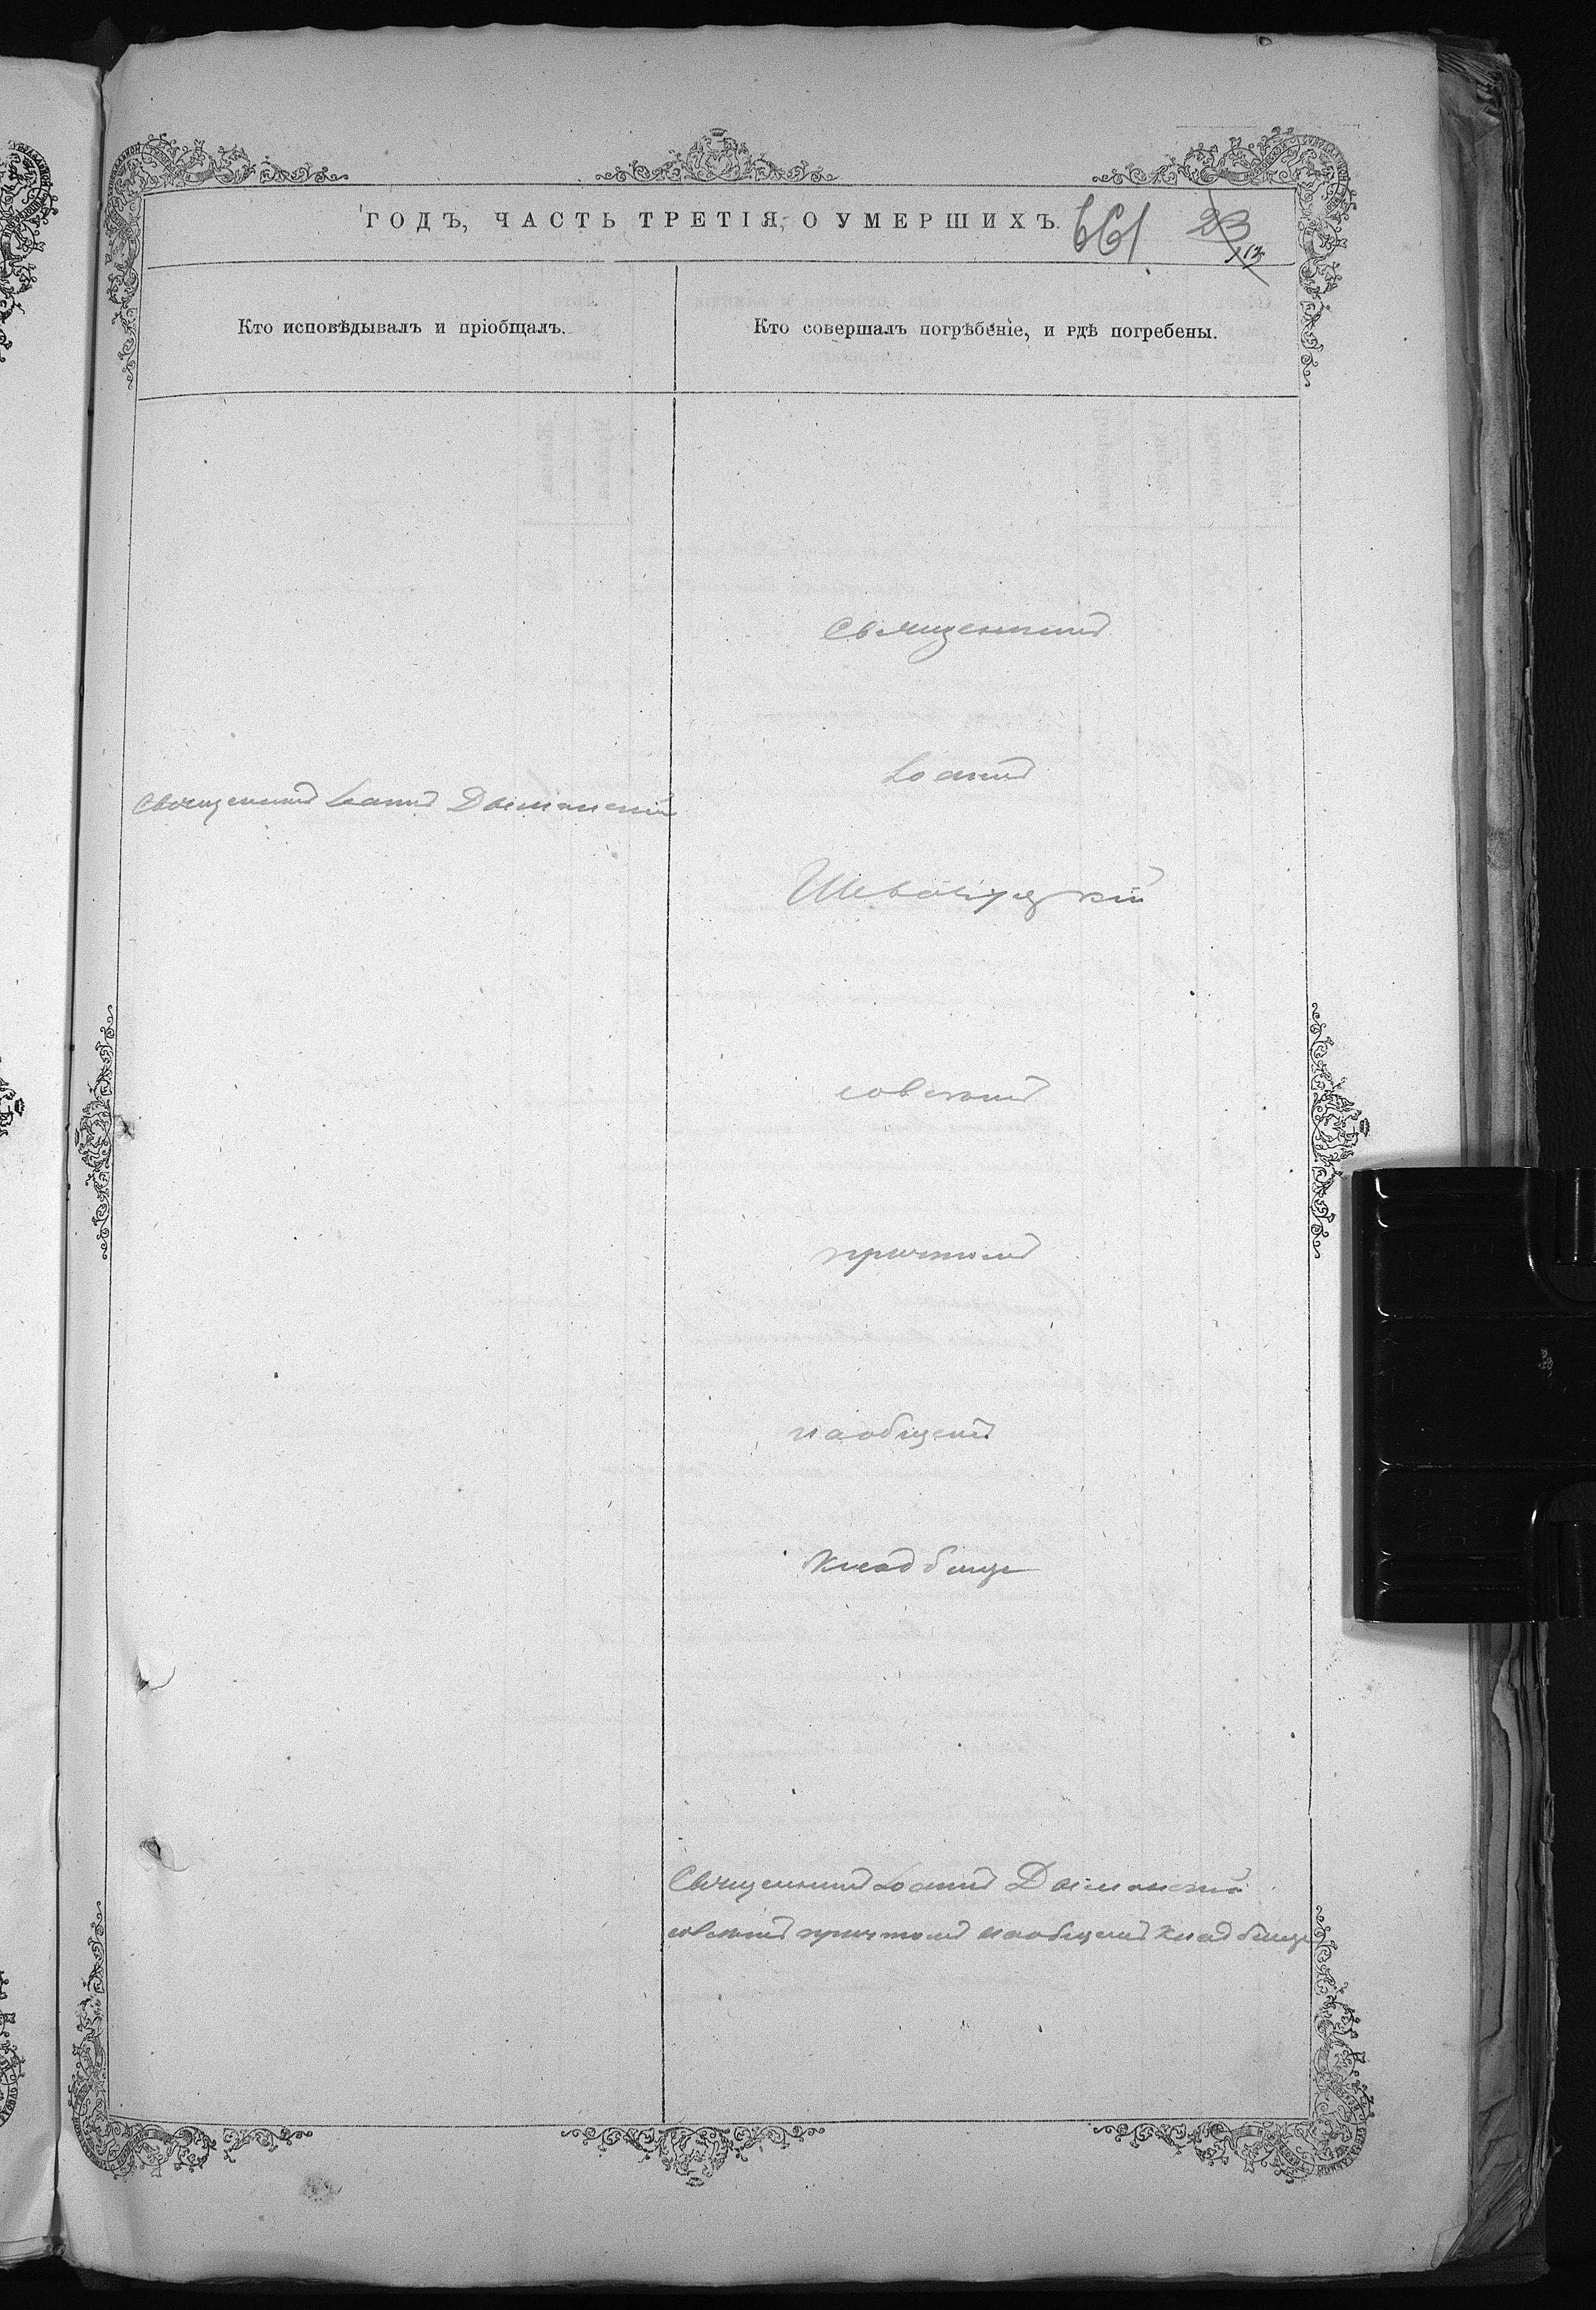 ГОДЪ, ЧАСТЬ ТРЕТІЯ, О УМЕРШИХЪ.
661
23
Кто исповѣдывалъ и пріобщалъ.
Кто совершалъ погрѣбеніе, и гдѣ погребены.
Священникъ Іоаннъ Дыминскій
Священникъ
Іоаннъ
совсѣмъ
причтомъ
наобщемъ
Кладбище
Священникъ Іоаннъ Дыминскій
совсѣмъ причтомъ наобщемъ Кладбище